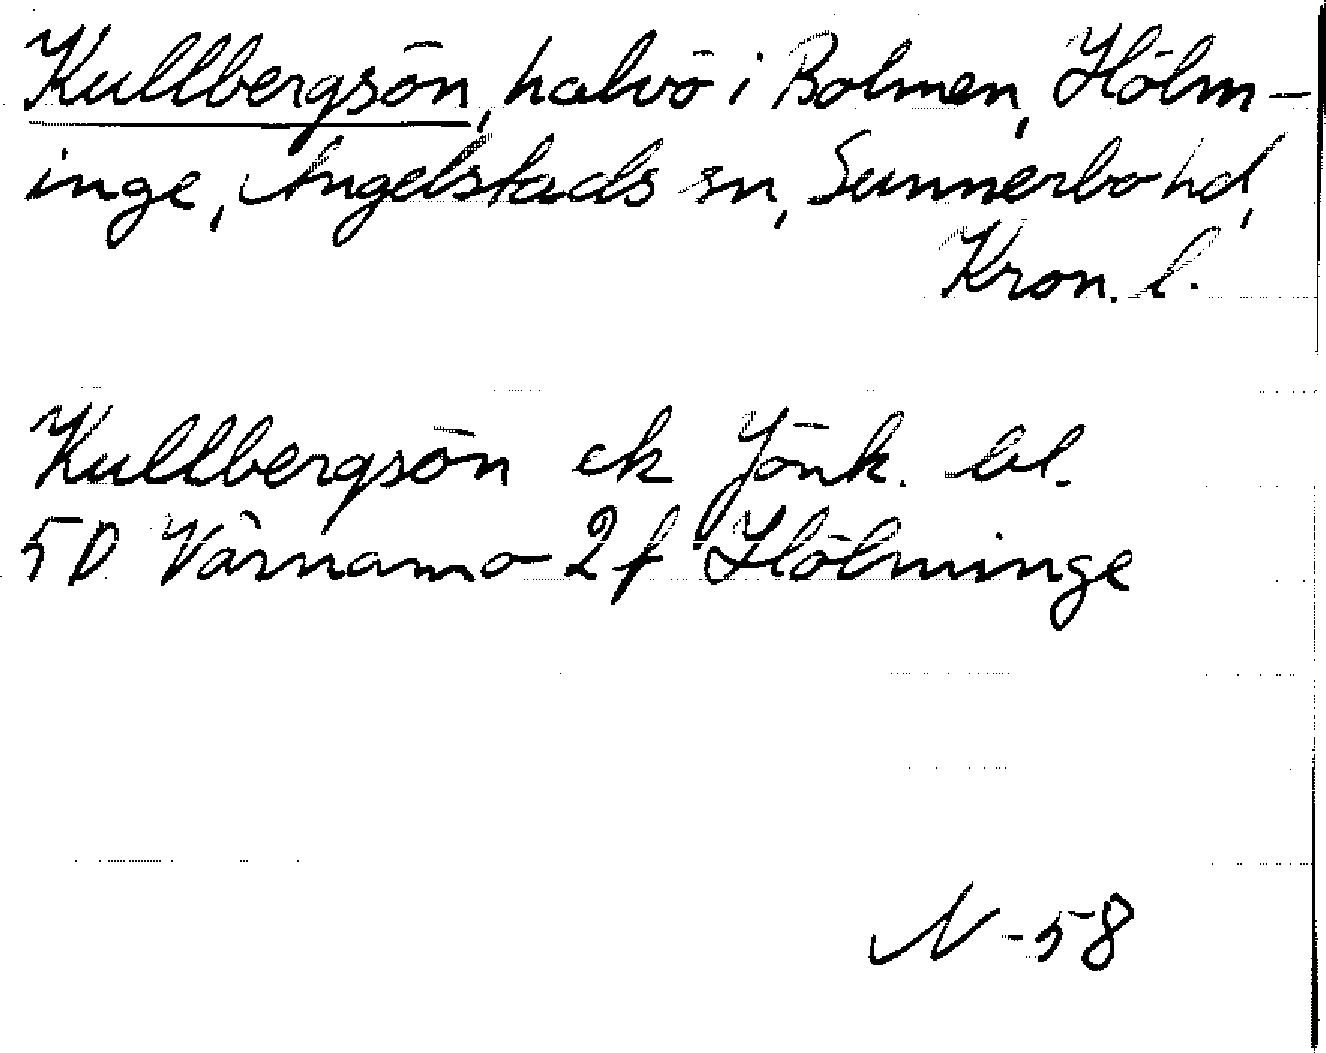 Kullbergsön, halvö i Bolmen, Hölm-
inge, Angelstads sn, Sunnerbo hd,
Kron. l.
Kullbergsön ek Jönk. bl.
5D Värnamo 2 f Hölminge
N -58